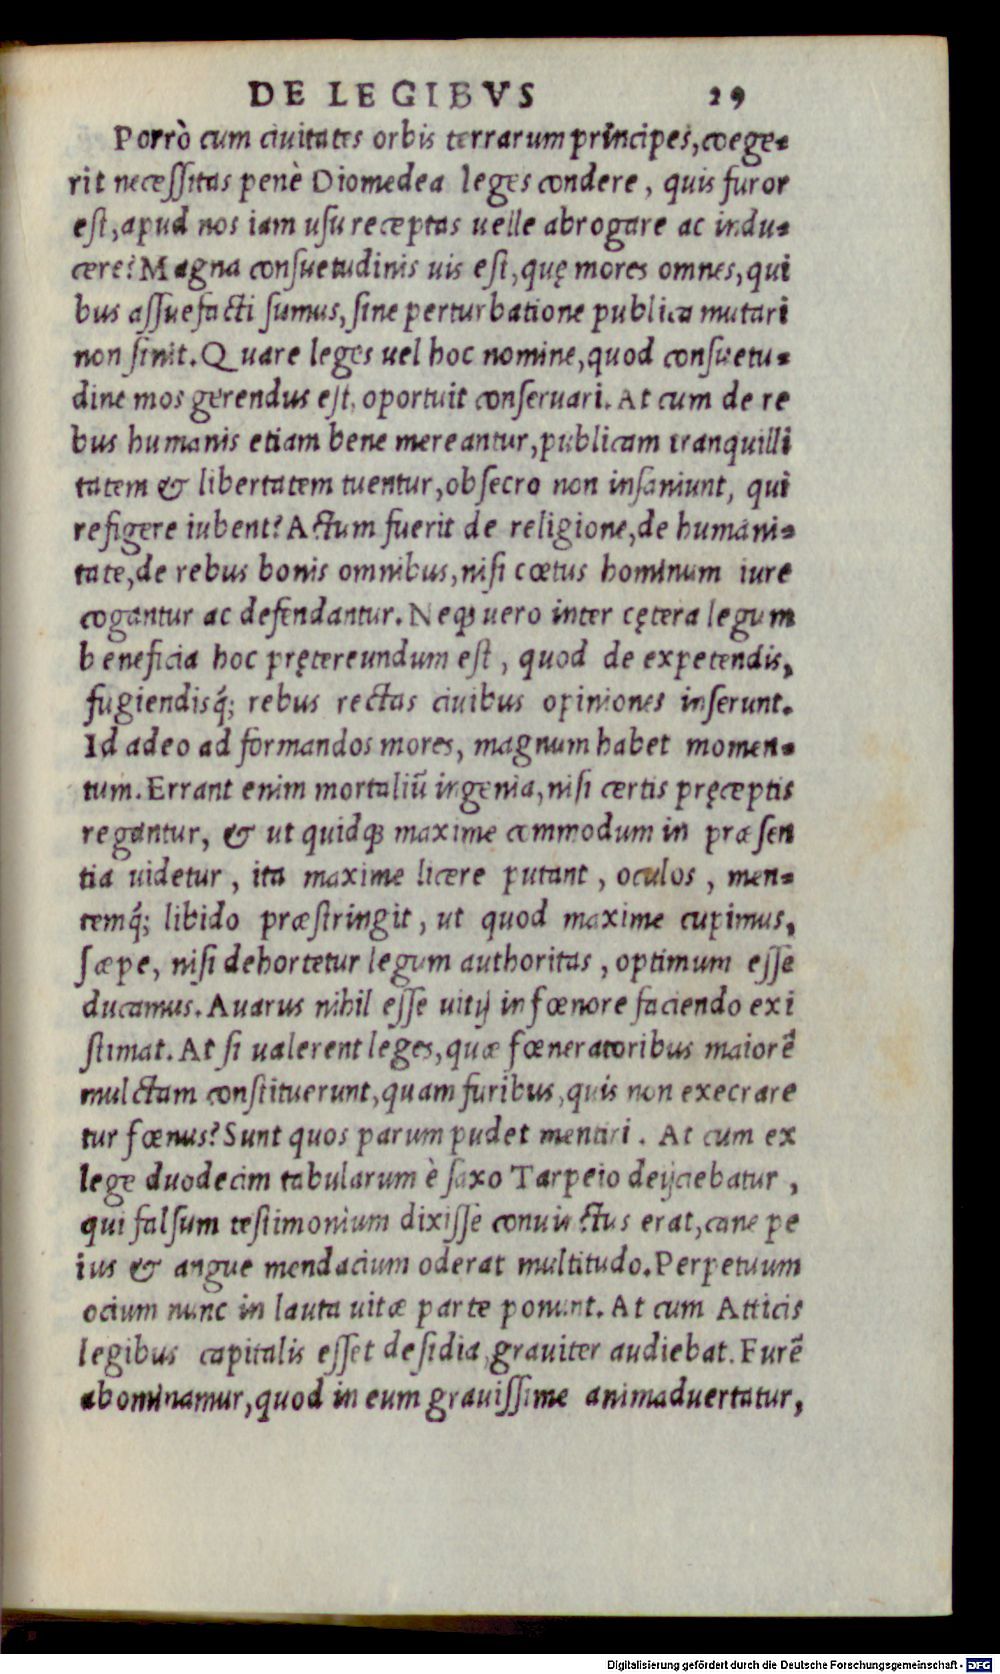 DE LEGIBVS 29
Porrò cum ciuitates orbis terrarum principes, coege-
rit necessitas penè Diomedea leges condere, quis furor
est, apud nos iam usu receptas uelle abrogare ac indu-
cere? Magna consuetudinis uis est, quę mores omnes, qui
bus assuefacti sumus, sine perturbatione publica mutari
non sinit. Quare leges uel hoc nomine, quod consuetu-
dine mos gerendus est, oportuit conseruari. At cum de re
bus humanis etiam bene mereantur, publicam tranquilli
tatem & libertatem tuentur, obsecro non insaniunt, qui
refigere iubent? Actum fuerit de religione, de humani-
tate, de rebus bonis omnibus, nisi cœtus hominum iure
cogantur ac defendantur. Neqꝫ uero inter cętera legum
beneficia hoc prętereundum est, quod de expetendis,
fugiendisq́; rebus rectas ciuibus opiniones inserunt.
Id adeo ad formandos mores, magnum habet momen-
tum. Errant enim mortaliū ingenia, nisi certis pręceptis
regantur, & ut quidqꝫ maxime commodum in præsen
tia uidetur, ita maxime licere putant, oculos, men-
temq́; libido præstringit, ut quod maxime cupimus,
sæpe, nisi dehortetur legum authoritas, optimum esse
ducamus. Auarus nihil esse uitij in fœnore faciendo exi
stimat. At si ualerent leges, quæ fœneratoribus maiorē
mulctam constituerunt, quam furibus, quis non execrare
tur fœnus? Sunt quos parum pudet mentiri. At cum ex
lege duodecim tabularum è saxo Tarpeio deijciebatur,
qui falsum testimonium dixisse conuictus erat, cane pe
ius & angue mendacium oderat multitudo. Perpetuum
ocium nunc in lauta uitæ parte ponunt. At cum Atticis
legibus capitalis esset desidia, grauiter audiebat. Furē
abominamur, quod in eum grauissime animaduertatur,
Digitalisierung gefördert durch die Deutsche Forschungsgemeinschaft - DFG